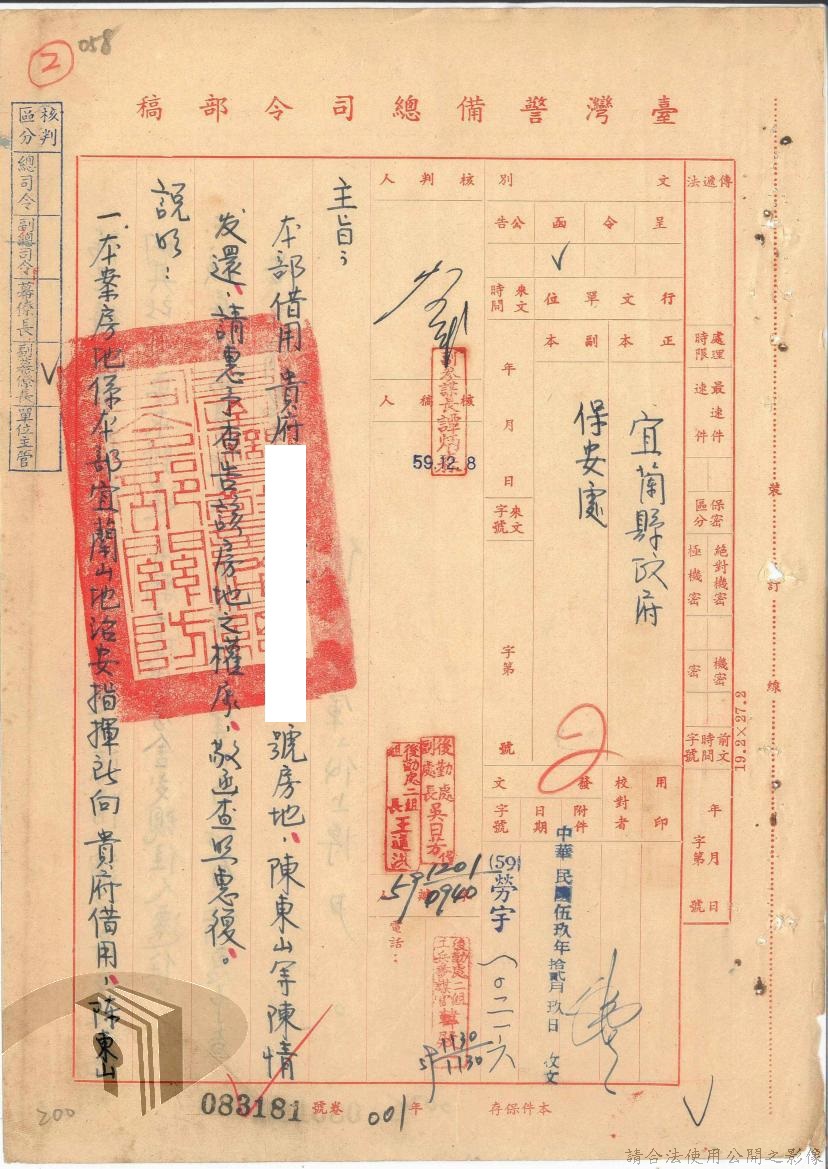 058
2
臺灣警備總司令部稿
核判區分
總司令
副總司令
幕僚長
副幕僚長
單位主管
傳遞法
處理時限
最速件
速件
保密區分
絕對機密
極機密
機密
密
前文時間字號
年月日
字第號
文別
呈
令
函
公告
行文單位
正本
副本
宜蘭縣政府
保安處
來文時間
年月日
來文字號
字第號
用印
校對者
發文
附件
日期
字號
中華民國伍玖年拾貳月玖日
發文
(59)勞宇
八〇二一六
核判人
核稿人
59.12.8
後勤處副處長吳日芳
後勤處二組組長王道洪
59 1201 0940
電話：
後勤處二組
1130
1130
主旨：
本部借用貴府
號房地，陳東山等陳情
發還，請惠予查告該房地之權屬，敬函查照惠復。
說明：
一、本案房地係本部宜蘭山地治安指揮所向貴府借用，陳東山
裝
訂
線
19.2×27.2
本件保存
年
001
卷號
083181
200
請合法使用公開之影像